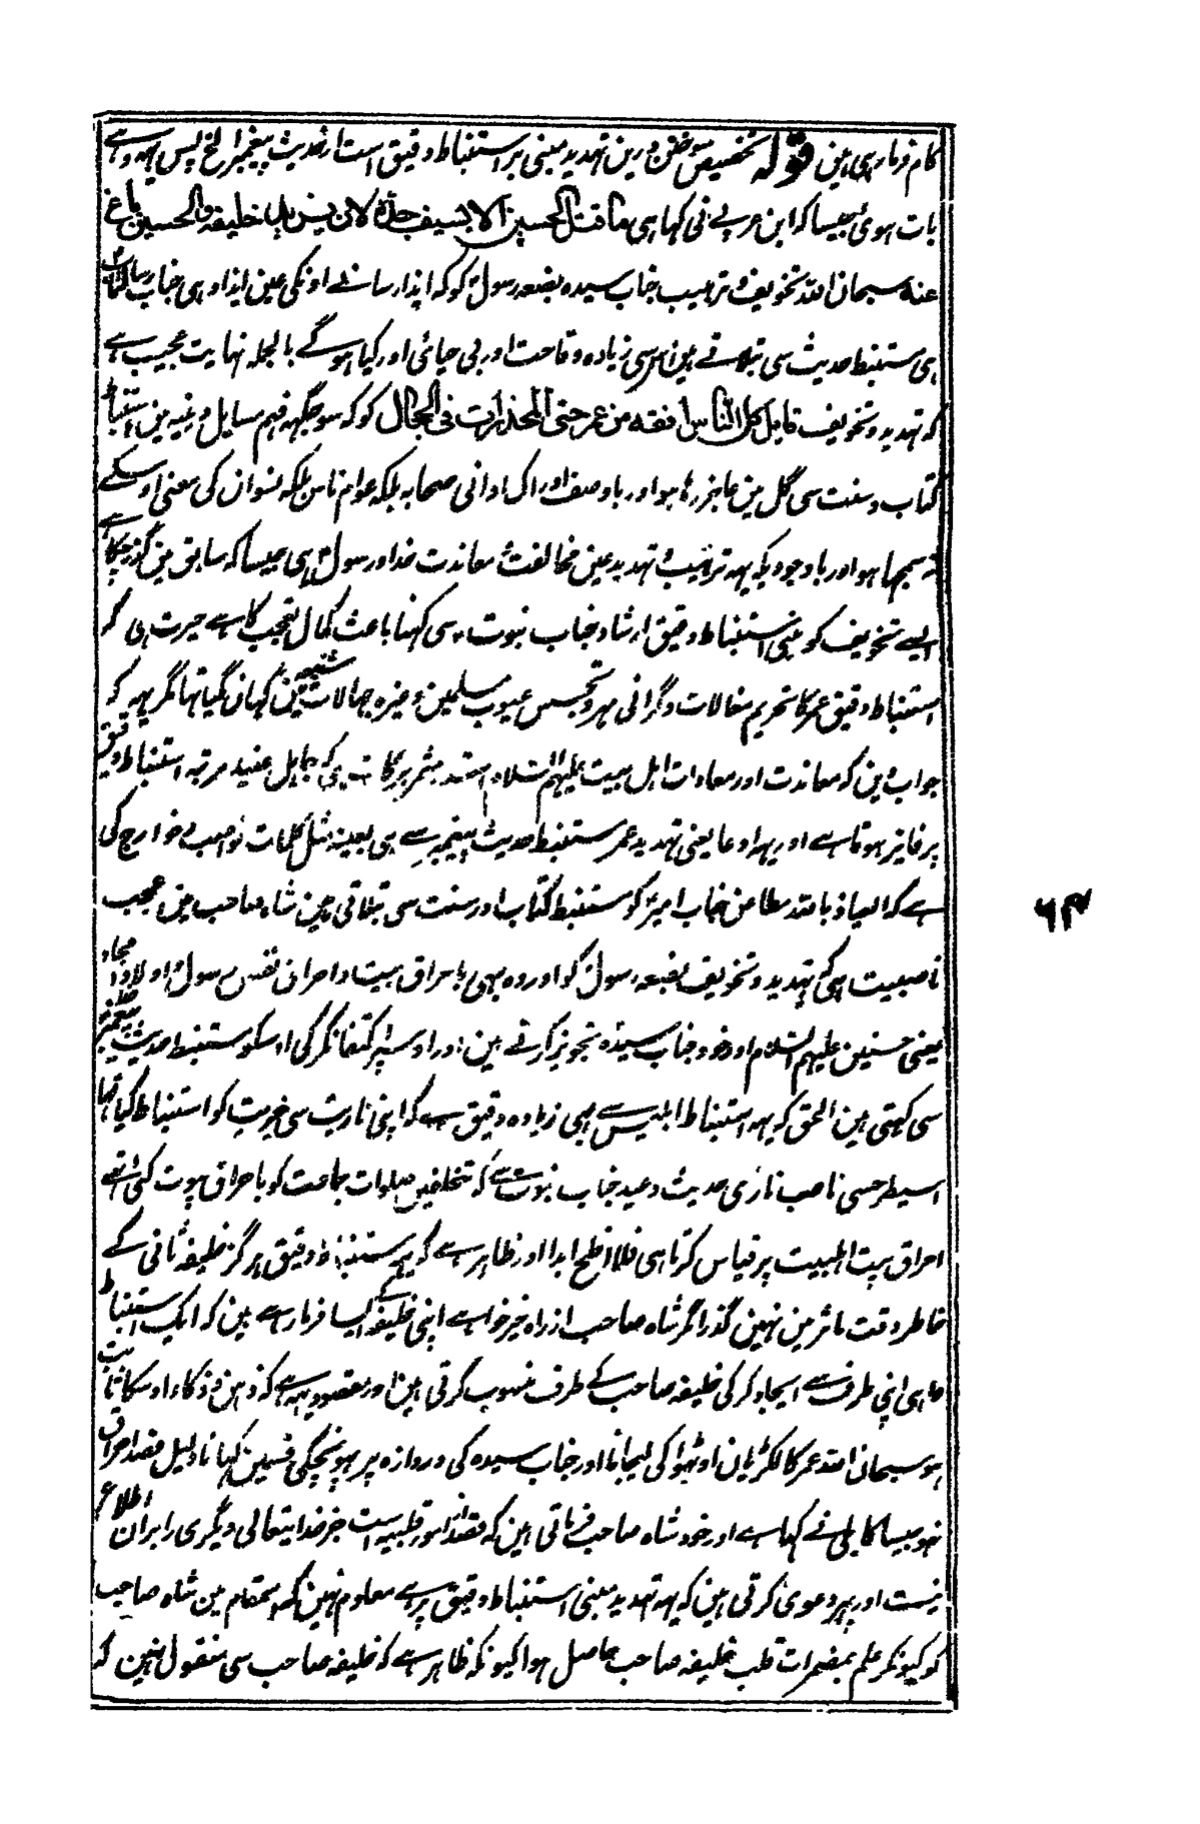 کام فرما رہی ہین قولہ تخصیص سوختن درین تہدید مبنی بر استنباط دقیق است از حدیث پیغمبر الخ پس یہہ وہے
بات ہوئی جیسا کہ ابن عربی نی کہا ہی ما قتل الحسین الا بسیف جدہ لان یزید خلیفہ والحسین باغ
عنہ سبحان اللہ تخویف و ترہیب جناب سیدہ بضعہ رسول کو کہ ایذا رسانے اونکی عین ایذا وہی جناب رسالتمآب
ہی مستنبط حدیث سی بتلاتے ہین اس سی زیادہ وقاحت اور بی حیائی اور کیا ہو گے بالجملہ نہایت عجیب ہے
کہ تہدید و تخویف قایل کل الناس افقہ من عمر حتی المخدرات فی الحجال کو کہ سو جگہہ فہم مسایل دینیہ مین استنباط
کتاب و سنت سی گل مین عاجز رہا ہو اور باوصف اوراک ادانی صحابہ بلکہ عوام ناس بلکہ نسوان کی معنی اوسکے
نہ سمجہا ہو اور باوجودیکہ یہہ ترہیب و تہدید عین مخالفت و معاندت خدا و رسول ہی جیسا کہ سابق مین گذر چکا ہے
ایسے تخویف کو مبنی استنباط دقیق ارشاد جناب نبوت سی کہنا باعث کمال تعجب کا ہے حیرت ہی کہ
استنباط دقیق عمر کا تحریم مغالات و گرانی مہر و تجسس عیوب مسلمین وغیرہ جہالات شنیعہ مین کہان گیا تہا مگر یہہ کہ
جواب مین کہ معاندت اور معادات اہل بیت علیہم السلام استدر مثمر برکات ہی کہ جاہل عنید مرتبہ استنباط دقیق
پر فایز ہوتا ہے اور یہہ ادعا یعنی تہدید عمر مستنبط حدیث پیغمبر سے ہی بعینہ مثل کلمات نواصب و خوارج کی
ہے کہ العیاذ باللہ مطاعن جناب امیر کو مستنبط کتاب اور سنت سی بتلاتی ہین شاہ صاحب مین عجب
ناصبیت ہی کہ تہدید و تخویف بضعہ رسول کو اور وہ بہی باحراق بیت و احراق نفس رسول و اولاد امجاد
یعنی حسنین علیہم السلام اور خود جناب سیدہ تجویز کرتے ہین اور اوسپر اکتفا نکر کی اوسکو مستنبط حدیث پیغمبر
سی کہتی ہین الحق کہ یہہ استنباط ابلیس سے بہی زیادہ دقیق ہے کہ اپنی ناریت سی خیریت کو استنباط کیا تہا
اسیطرحسی ناصب ناری حدیث وعید جناب نبوت سے کہ متخلفین صلوات جماعت کو باحراق بیوت کئی تہے
احراق بیت اہلبیت پر قیاس کرتا ہی فلا افلح ابدا اور ظاہر ہے کہ یہہ استنباط دقیق ہرگز خلیفہ ثانی کے
خاطر وقت ماثر مین نہین گذرا مگر شاہ صاحب از راہ خیرخواہے اپنی خلیفہ کے ایسا فرما رہے ہین کہ ایک استنباط
ماہی اپنی طرف سے ایجاد کر کی خلیفہ صاحب کے طرف منسوب کرتی ہین اور مقصود یہہ ہے کہ ذہن و ذکاء اوسکا ثابت
ہو سبحان اللہ عمر کا لکڑیان اوٹہوا کی لیجانا اور جناب سیدہ کی دروازہ پر پہونچکی قسمین کہانا دلیل قصد احراق
نہو جیسا کابلی نے کہا ہے اور خود شاہ صاحب فرماتی ہین کہ قصد از امور قلبیہ است جز خدایتعالی دیگری را بران اطلاع
نیست اور پہر دعوی کرتی ہین کہ یہہ تہدید مبنی استنباط دقیق پر ہے معلوم نہین کہ اسمقام مین شاہ صاحب
کو کیونکر علم بمضمرات قلب خلیفہ صاحب حاصل ہوا کیونکہ ظاہر ہے کہ خلیفہ صاحب سی منقول نہین کہ
۶۴